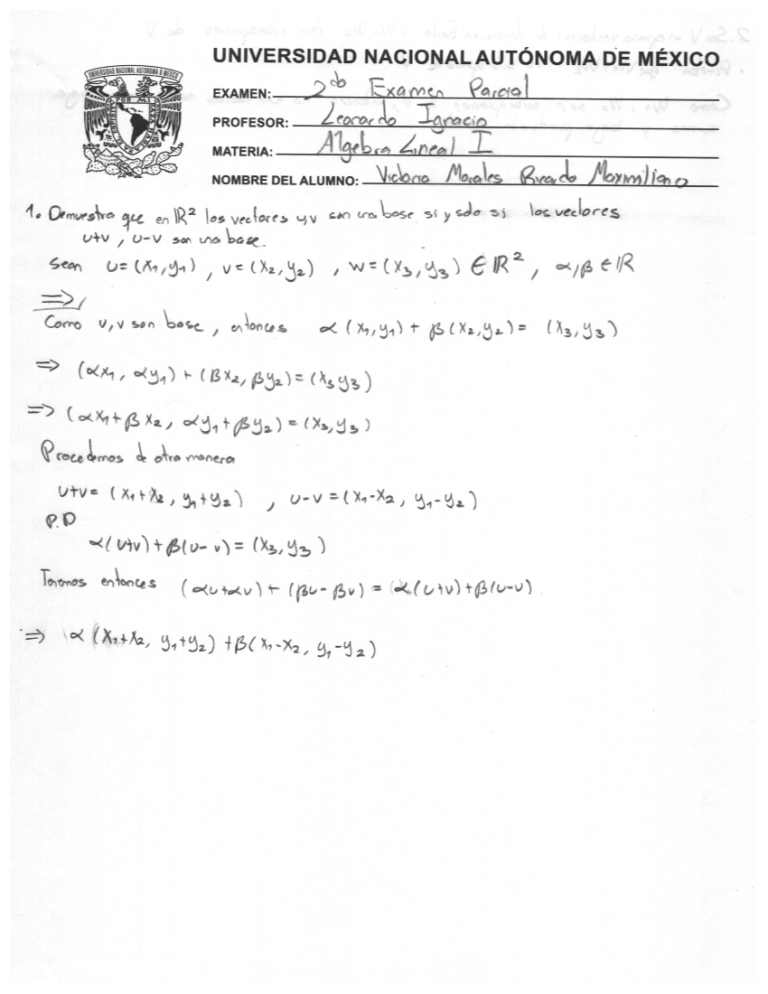 UNIVERSIDAD NACIONAL AUTÓNOMA DE MÉXICO
EXAMEN: 2do Examen Parcial
PROFESOR: Leonardo Ignacio
MATERIA: Algebra Lineal I
NOMBRE DEL ALUMNO: Victoria Morales Ricardo Maximiliano
1. Demuestra que en ℝ² los vectores u,v son una base si y solo si los vectores
u+v, u-v son una base.
Sean u=(x₁,y₁), v=(x₂,y₂), w=(x₃,y₃) ∈ ℝ², α,β ∈ ℝ
⇒/
Como u,v son base, entonces α(x₁,y₁) + β(x₂,y₂) = (x₃,y₃)
⇒ (αx₁, αy₁) + (βx₂, βy₂) = (x₃,y₃)
⇒ (αx₁+βx₂, αy₁+βy₂) = (x₃,y₃)
Procedemos de otra manera
u+v = (x₁+x₂, y₁+y₂), u-v = (x₁-x₂, y₁-y₂)
P.D
α(u+v) + β(u-v) = (x₃,y₃)
Tenemos entonces (αu+αv) + (βu-βv) = α(u+v)+β(u-v)
⇒ α(x₁+x₂, y₁+y₂) + β(x₁-x₂, y₁-y₂)